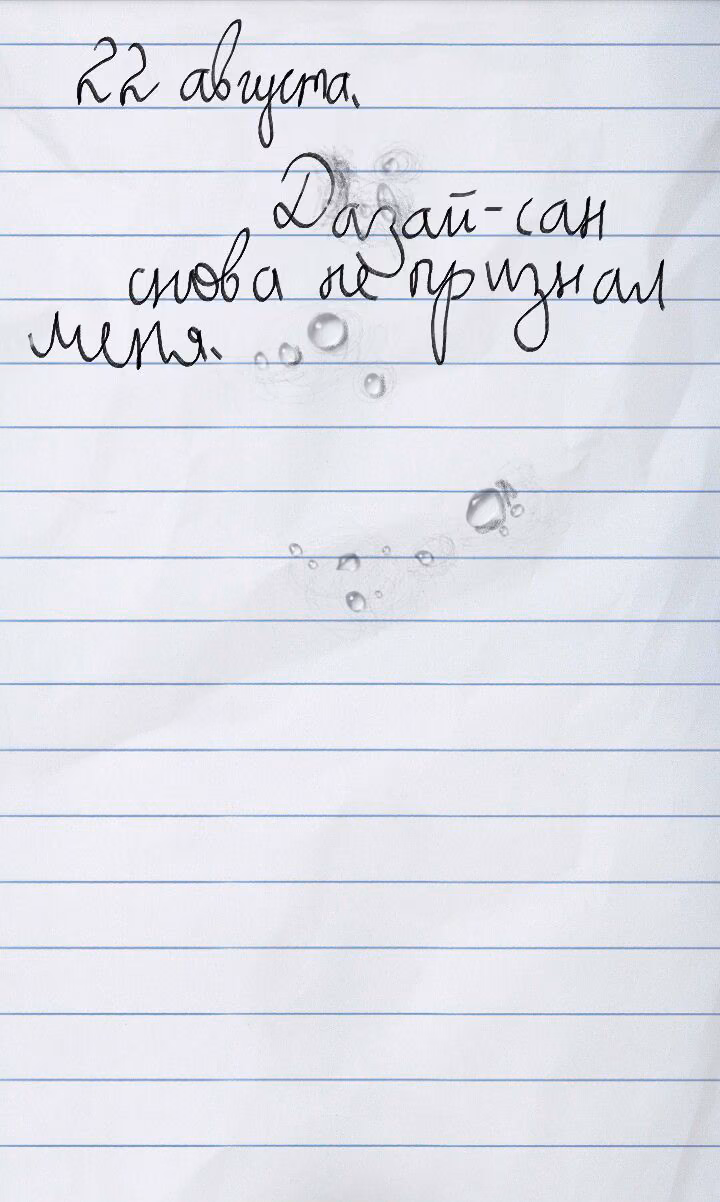 22 августа.
Дазай-сан
снова не признал
меня.